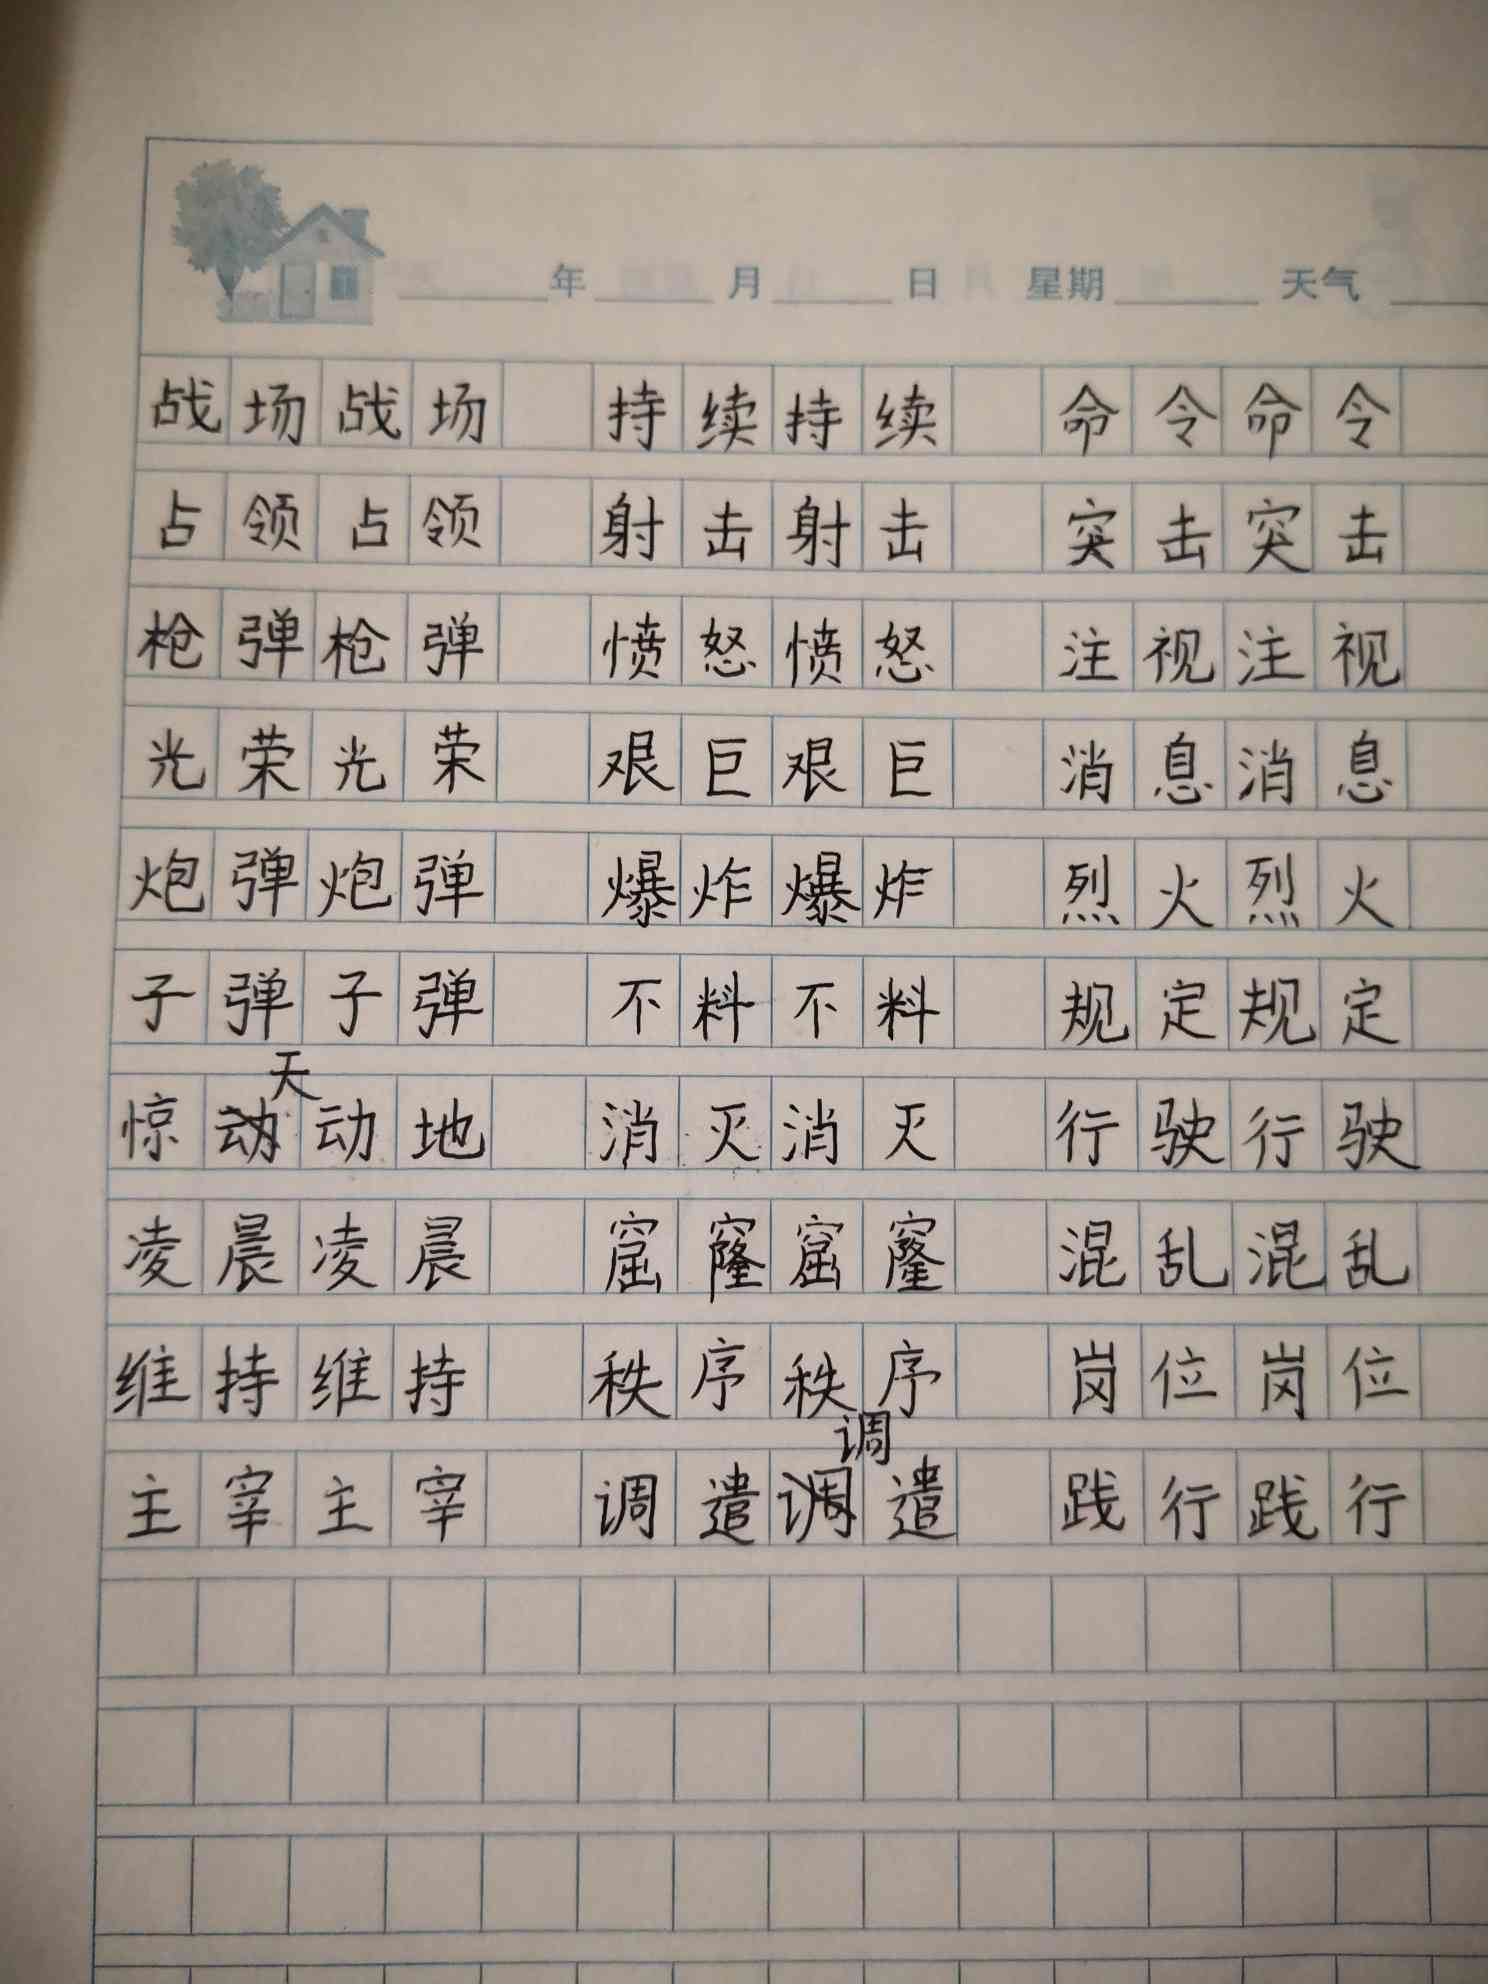 年 月 日 星期 天气
战场战场 持续持续 命令命令
占领占领 射击射击 突击突击
枪弹枪弹 愤怒愤怒 注视注视
光荣光荣 艰巨艰巨 消息消息
炮弹炮弹 爆炸爆炸 烈火烈火
子弹子弹 不料不料 规定规定
惊天动地 消灭消灭 行驶行驶
凌晨凌晨 窟窿窟窿 混乱混乱
维持维持 秩序秩序 岗位岗位
主宰主宰 调遣调遣 践行践行